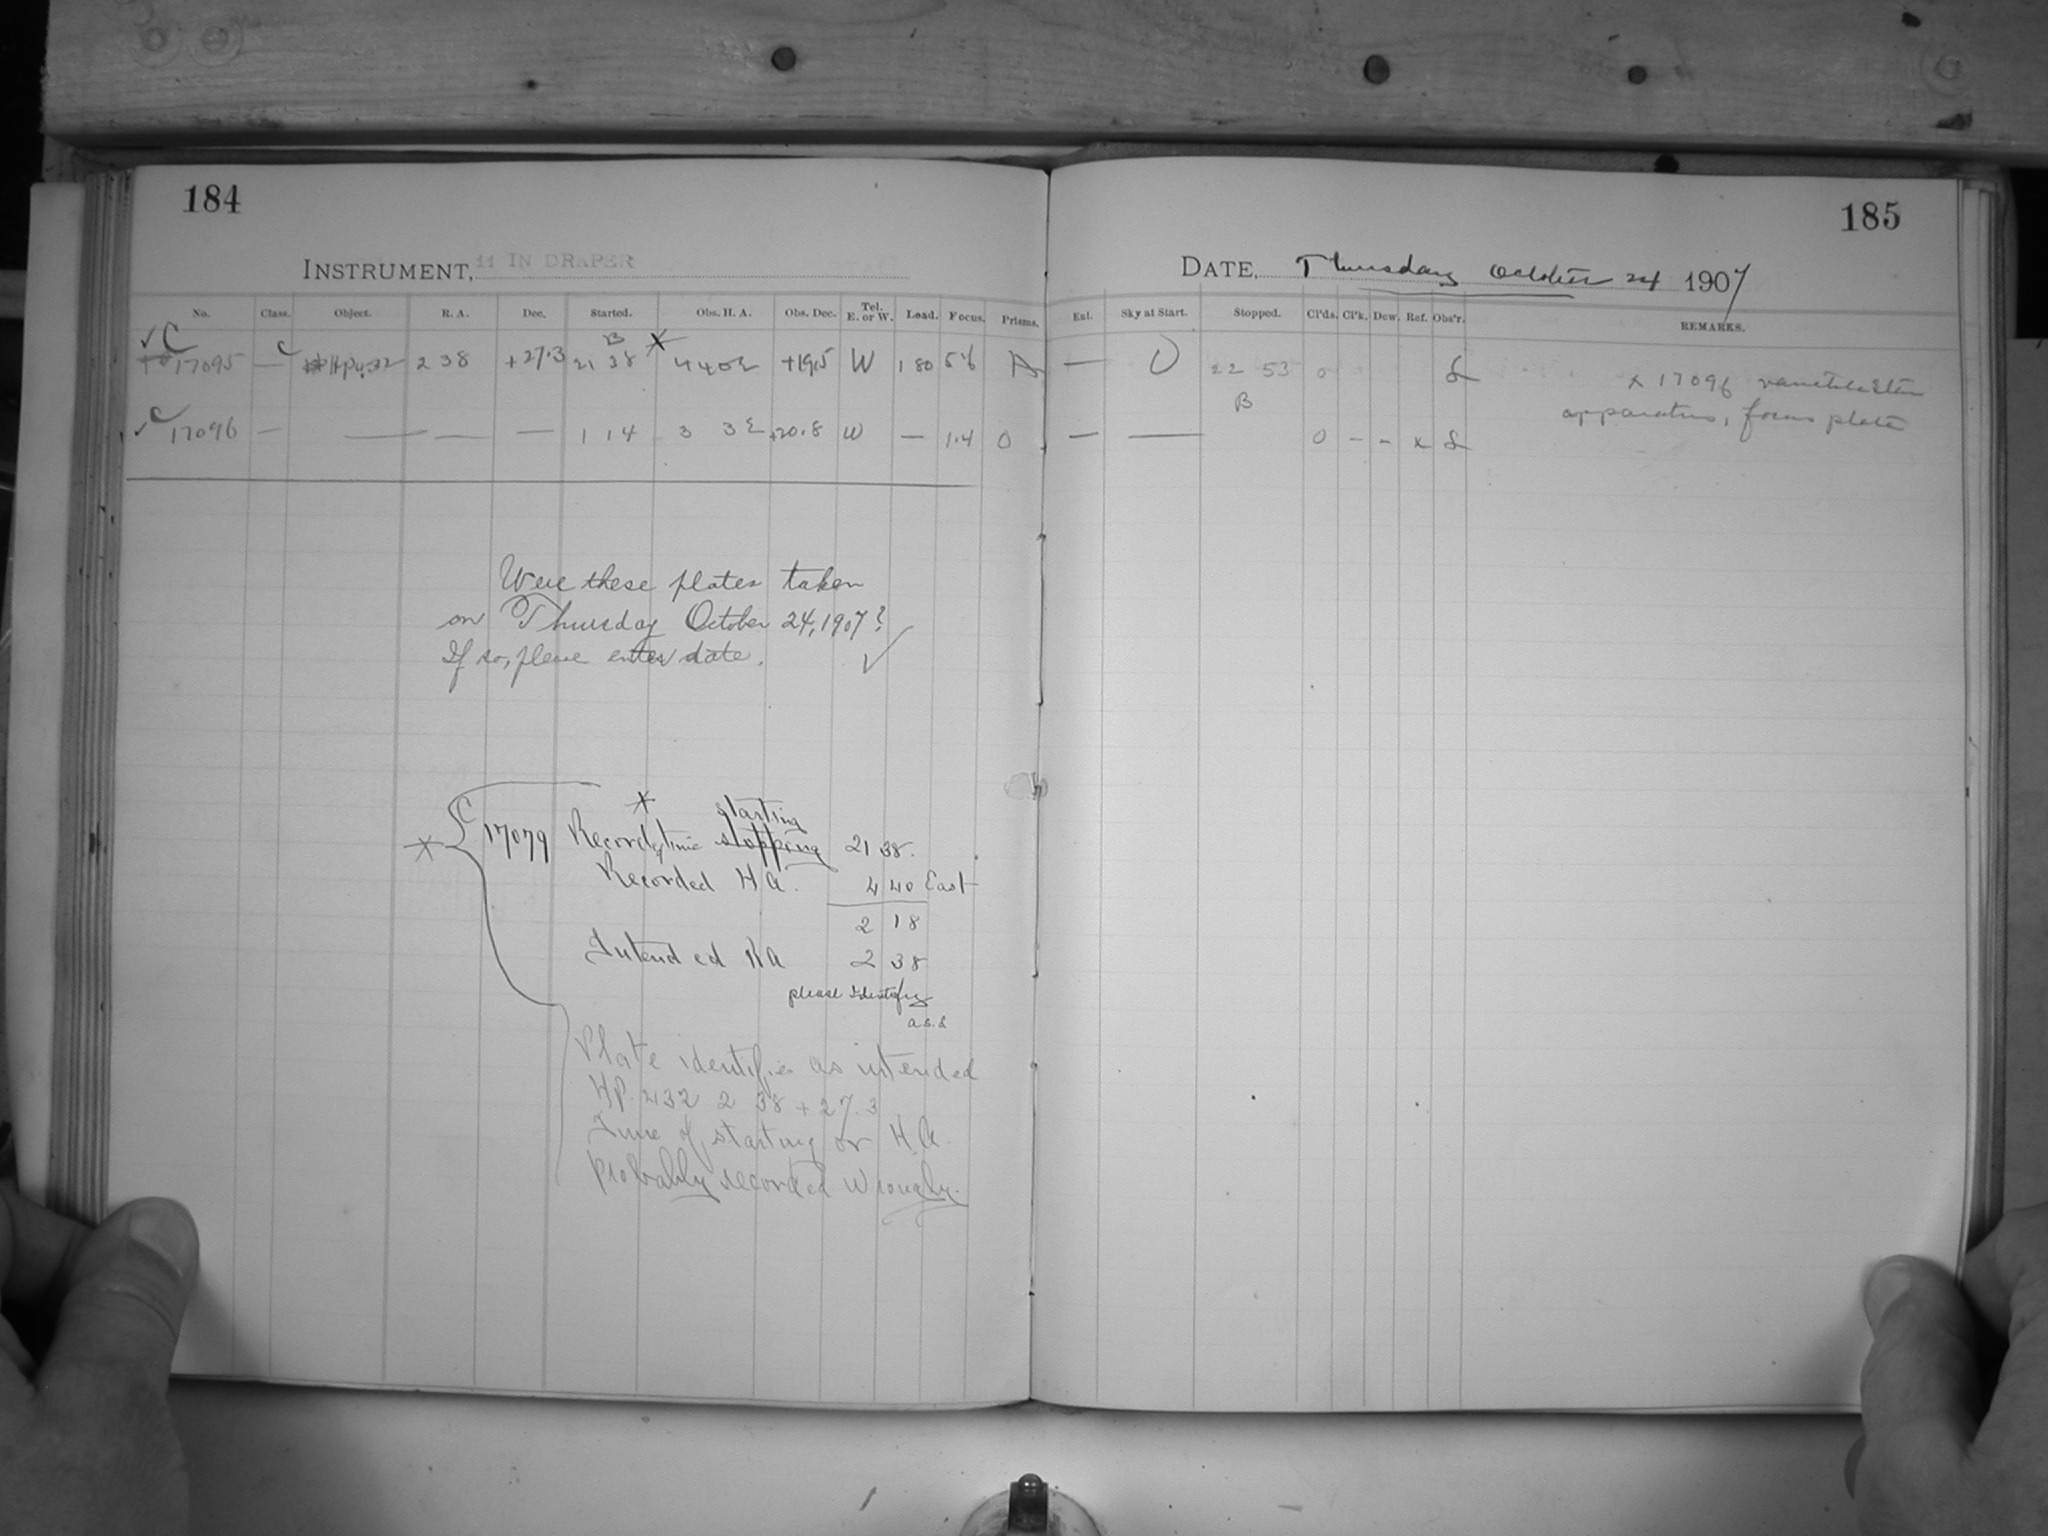 184
185
INSTRUMENT, 11 IN DRAPER
DATE, Thursday October 24 1907
No. Class. Object. R. A. Dec. Started. Obs. H. A. Obs. Dec. Tel. E. or W. Load. Focus. Prisms. Ent. Sky at Start. Stopped. Cl'ds. Cl'k. Dew. Ref. Obs'r. REMARKS.
B
✓ C 17095 — C HP432 2 38 +27.3 21 38 * 4 40 E +19.5 W 180 5.6 — 0 22 53 0 x 17096
B apparatus, focus plate
✓ C 17096 — — — — 1 14 3 3 E +20.8 W — 1.4 0 — — 0 - - x
Were these plates taken
on Thursday October 24, 1907?
If so, please enter date. ✓
* starting
* C 17079 Record of time stopping 21 38.
Recorded H A. 4 40 East
2 18
Intended RA 2 38
please Identify
a.s.
Plate identifies as intended
HP. 432 2 38 + 27.3
Time of starting or H.A.
probably recorded wrongly.